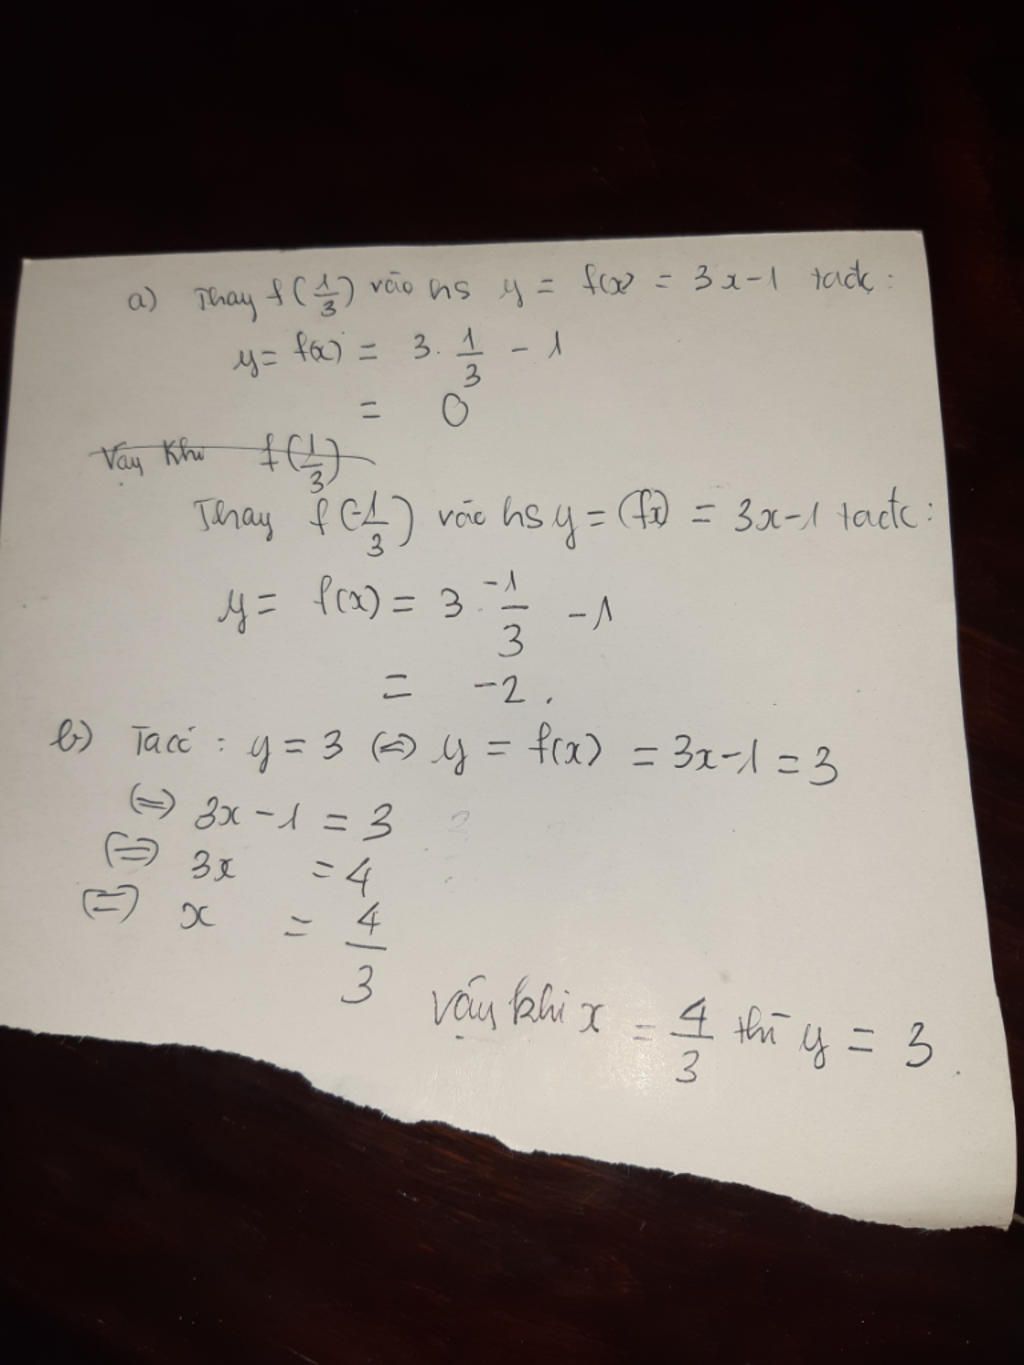 a) Thay f(1/3) vào hs y = f(x) = 3x-1 tađc:
y = f(x) = 3. 1/3 - 1
= 0
Vậy khi f(1/3)
Thay f(-1/3) vào hs y = (fx) = 3x-1 tađc:
y = f(x) = 3. -1/3 - 1
= -2.
b) Ta có: y = 3 (=) y = f(x) = 3x-1 = 3
(=) 3x - 1 = 3
(=) 3x = 4
(=) x = 4/3
Vậy khi x = 4/3 thì y = 3.